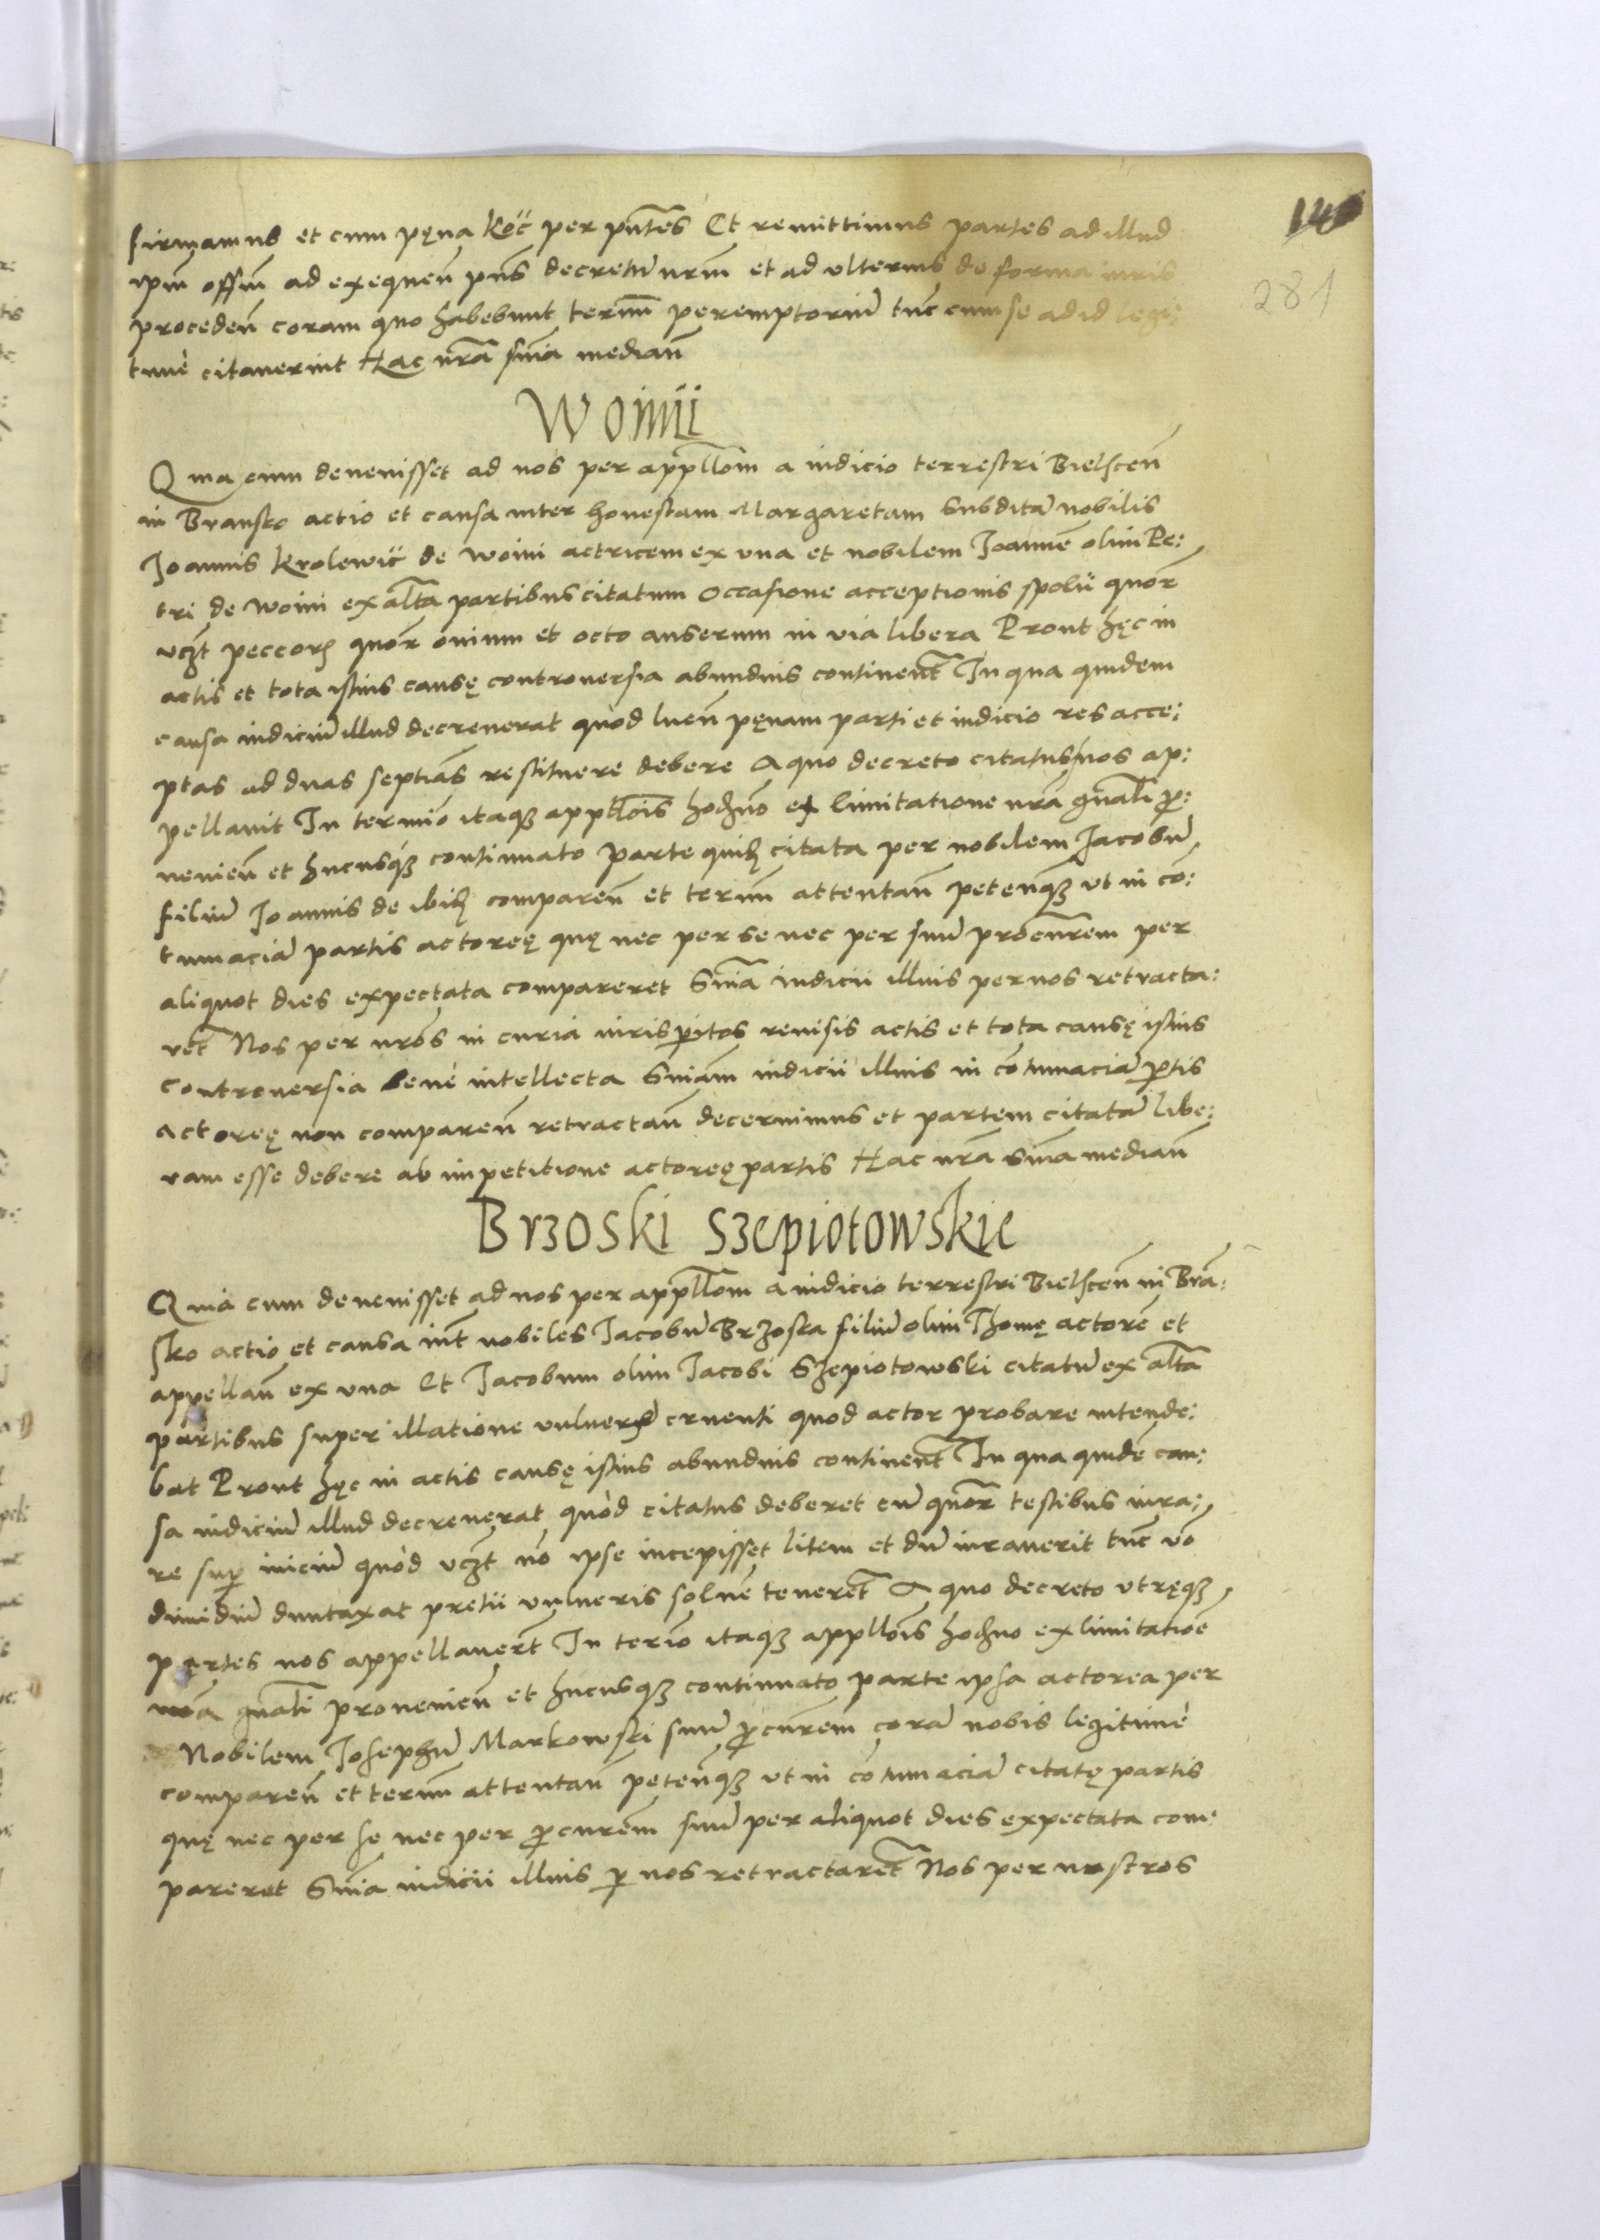 140
281
firmamus et cum pęna Koć per pñtes Et remittimus partes ad illud
ipm offm ad exequeñ pñs decretũ nrm et ad vlterius de forma iuris
procedeñ coram quo habebunt termm peremptoriũ tuc cum se ad id legi:
time citauerint Hac nrã sniã mediañ
Woinii
Quia cum deuenisset ad nos per appllom a iudicio terrestri Bielsceñ
in Bransko actio et causa inter honestam Margaretam Subditã nobilis
Joannis Krolewic̈ de Woini actricem ex vna et nobilem Joannẽ olim Pe:
tri de Woini ex altã partibus citatum Occasione acceptionis spolii quor̃
vczt peccorȝ quor̃ ouium et octo anserum in via libera Prout hęc in
actis et tota istius causę controuersia abundius continent̃ In qua quidem
causa iudiciũ illud decreuerat quod lueñ pęnam parti et iudicio res acce:
ptas ad duas septiãs restituere debere A quo decreto citatus nos ap:
pellauit In termĩo itaqȝ appllõis hodrño ex limitatione nrã gñali pro:
uenieñ et hucusqȝ continuato parte quiȝ citata per nobilem Jacobũ
filiũ Joannis de ibiȝ compareñ et termm attentañ peteñqȝ vt in cõ:
tumaciã partis actoreę quę nec per se nec per suũ procurem per
aliquot dies expectata compareret Sniã iudicii illius per nos retracta:
ret̃ Nos per nrõs in curia iurispĩtos reuisis actis et tota causę istius
controuersia bene intellecta Sniãm iudicii illius in cõtumaciã ptis
actoreę non compareñ retractañ decernimus et partem citatã libe:
ram esse debere ab impetitione actoreę partis Hac nrã sniã mediañ
Brzoski Szepiotowskie
Quia cum deuenisset ad nos per appllom a iudicio terrestri Bielsceñ in Brã:
sko actio et causa int̃ nobiles Jacobũ Brzoska filiũ olim Thomę actorẽ et
appellañ ex vna Et Jacobum olim Jacobi Szepiotowski citatũ ex altã
partibus super illatione vulneris cruenti quod actor probare intende:
bat Prout hęc in actis causę istius abundius continent̃ In qua quidẽ cau:
sa iudiciũ illud decreuerat quòd citatus deberet cũ quor̃ testibus iura:
re sup iniciũ quòd vczt nõ ipse incepisset litem et dũ iurauerit tuc võ
dimidiũ duntaxat pretii vulneris soluẽ teneret̃ A quo decreto vtręqȝ
partes nos appellauert̃ In terĩo itaqȝ appllõis hodrño ex limitatiõe
nrã gñali prouenieñ et hucusqȝ continuato parte ipsa actorea per
Nobilem Josephũ Markowski suũ pcurem corã nobis legitimè
compareñ et termm attentañ peteñqȝ vt in cõtumaciã citatę partis
quę nec per se nec per pcurem suũ per aliquot dies expectata com:
pareret Sniã iudicii illius p nos retractaret̃ Nos per nostros